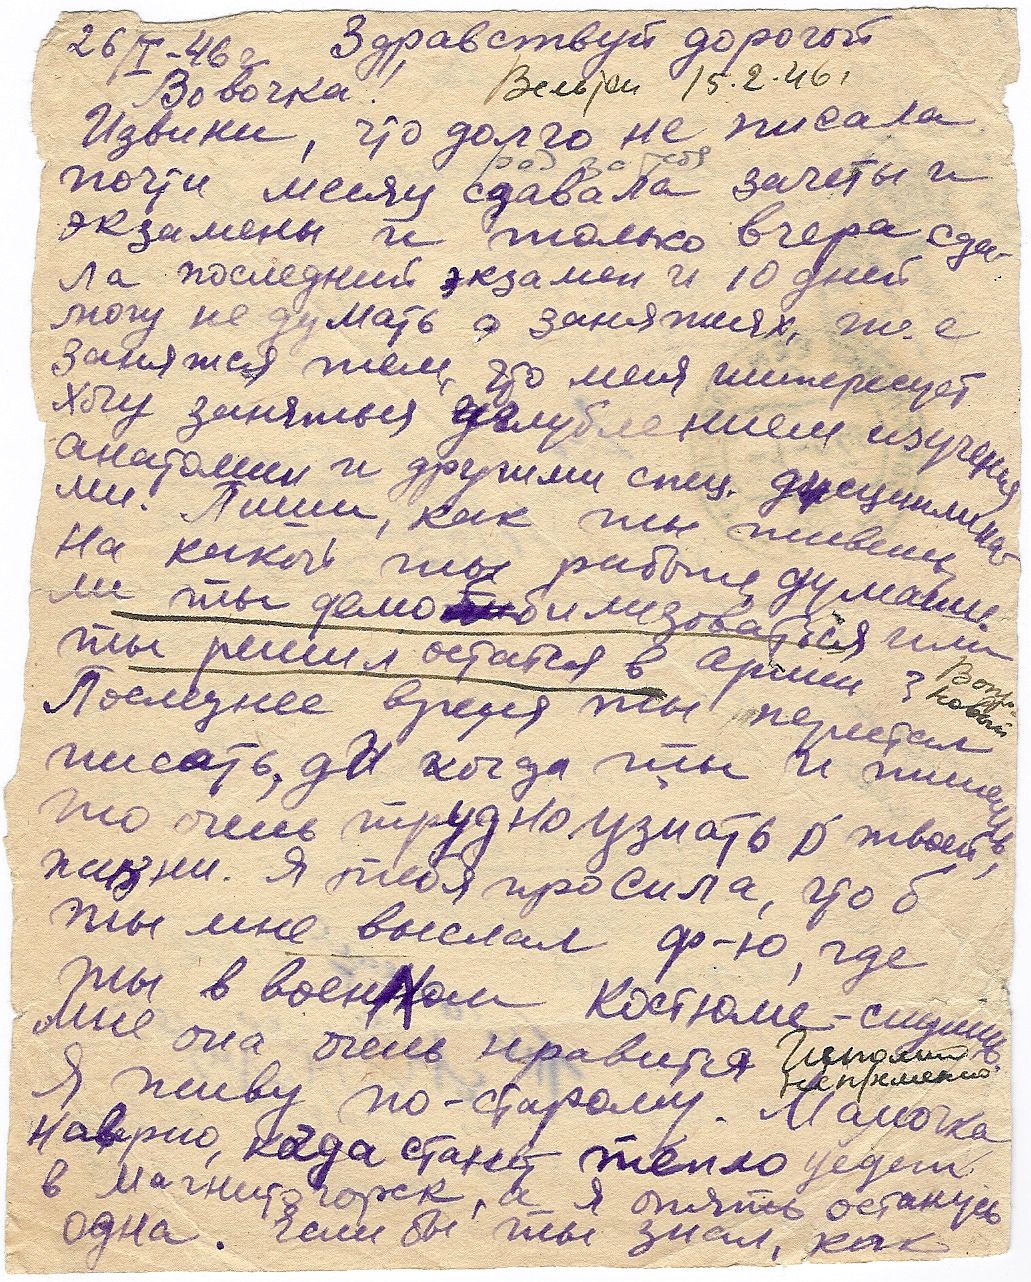 26/I-46г Здравствуй дорогой
Вовочка!
15.2.46г
Извини, что долго не писала
рад за тебя
почти месяц сдавала зачеты и
экзамены и только вчера сда-
ла последний экзамен и 10 дней
могу не думать о занятиях, т.е.
заняться тем, что меня интересует
хочу заняться углублением изучения
анатомии и другими спец. дисциплина-
ми. Пиши, как ты живешь,
На какой ты работе, думаеш
ли ты демобилизоваться или
ты решил остатся в армии?
Последнее время ты перестал
писать, да и когда ты и пишешь,
то очень трудно узнать о твоей
жизни. Я тебя просила, что б
ты мне выслал ф-ю, где
ты в военном костюме - сидишь
мне она очень нравится
Исполню
непременно.
Я живу по-старому. Мамочка
наврно, когда станет тепло уедет
в Магнитогорск, а я опять останусь
одна. Если бы ты знал, как